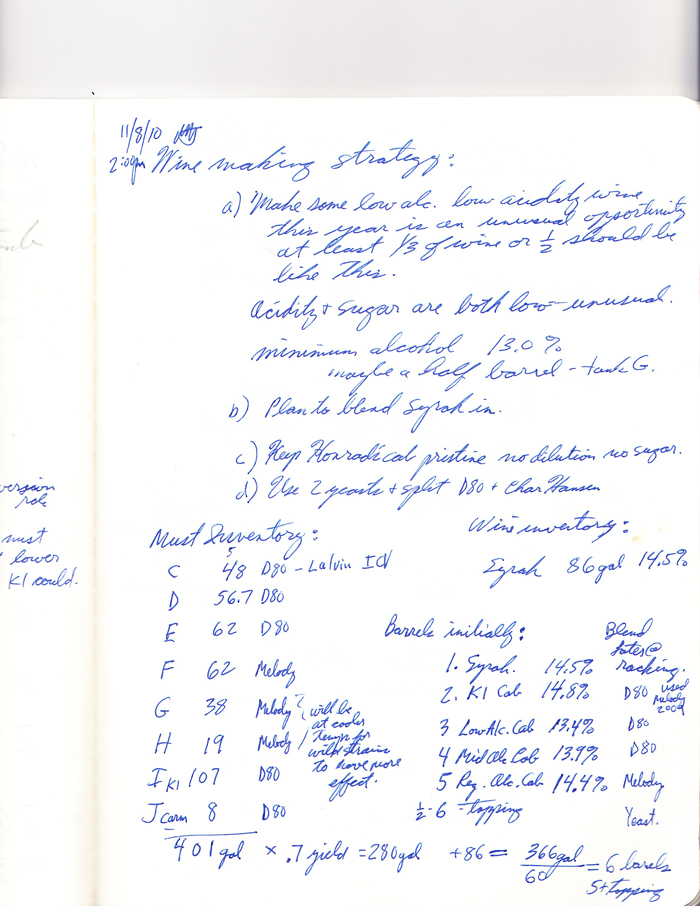 11/8/10
2:00pm Wine making strategy:
a) Make some low alc. low acidity wine
this year is an unusual opportunity
at least 1/3 of wine or 1/2 should be
like this.
Acidity + sugar are both low - unusual.
minimum alcohol 13.0%
maybe a half barrel - tank G.
b) Plan to blend Syrah in.
c) Keep Honradi cab pristine no dilution no sugar.
d) Use 2 yeasts + split D80 + Char Hansen
version
role
must
lower
K1 could.
Must Inventory:
Wine inventory:
C 48 D80 - Lalvin ICV
Syrah 86gal 14.5%
D 56.7 D80
E 62 D80
F 62 Melody
G 38 Melody?
H 19 Melody
will be
at cooler
temps for
wild strains
to have more
effect.
I K1 107 D80
J Carm 8 D80
Barrels initially:
Blend
later @
racking.
1. Syrah. 14.5%
2. K1 Cab 14.8% D80 used
Melody
2009
3 Low Alc. Cab 13.4% D80
4 Mid Alc Cob 13.9% D80
5 Reg. Alc. Cab 14.4% Melody
Yeast.
1/2 - 6 = topping
401gal × .7 yield = 280gal +86 = 366gal
60
= 6 barels
5+topping